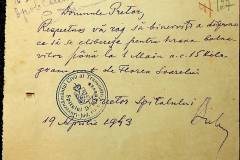 Domnule Pretor,
Respectuos vă rog să binevoiți a dispune
ca să se elibereze pentru hrana bolna-
vilor până la 1 Main a.c. 15 kilo-
grame unt de Floarea Soarelui
Director Spitalului
19 Aprilie 1943